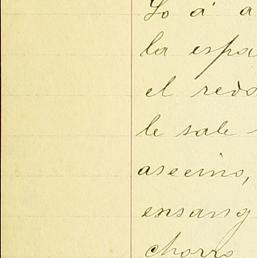 Lo á a
la espa
el redo
le sale
asecino,
ensang
chorro